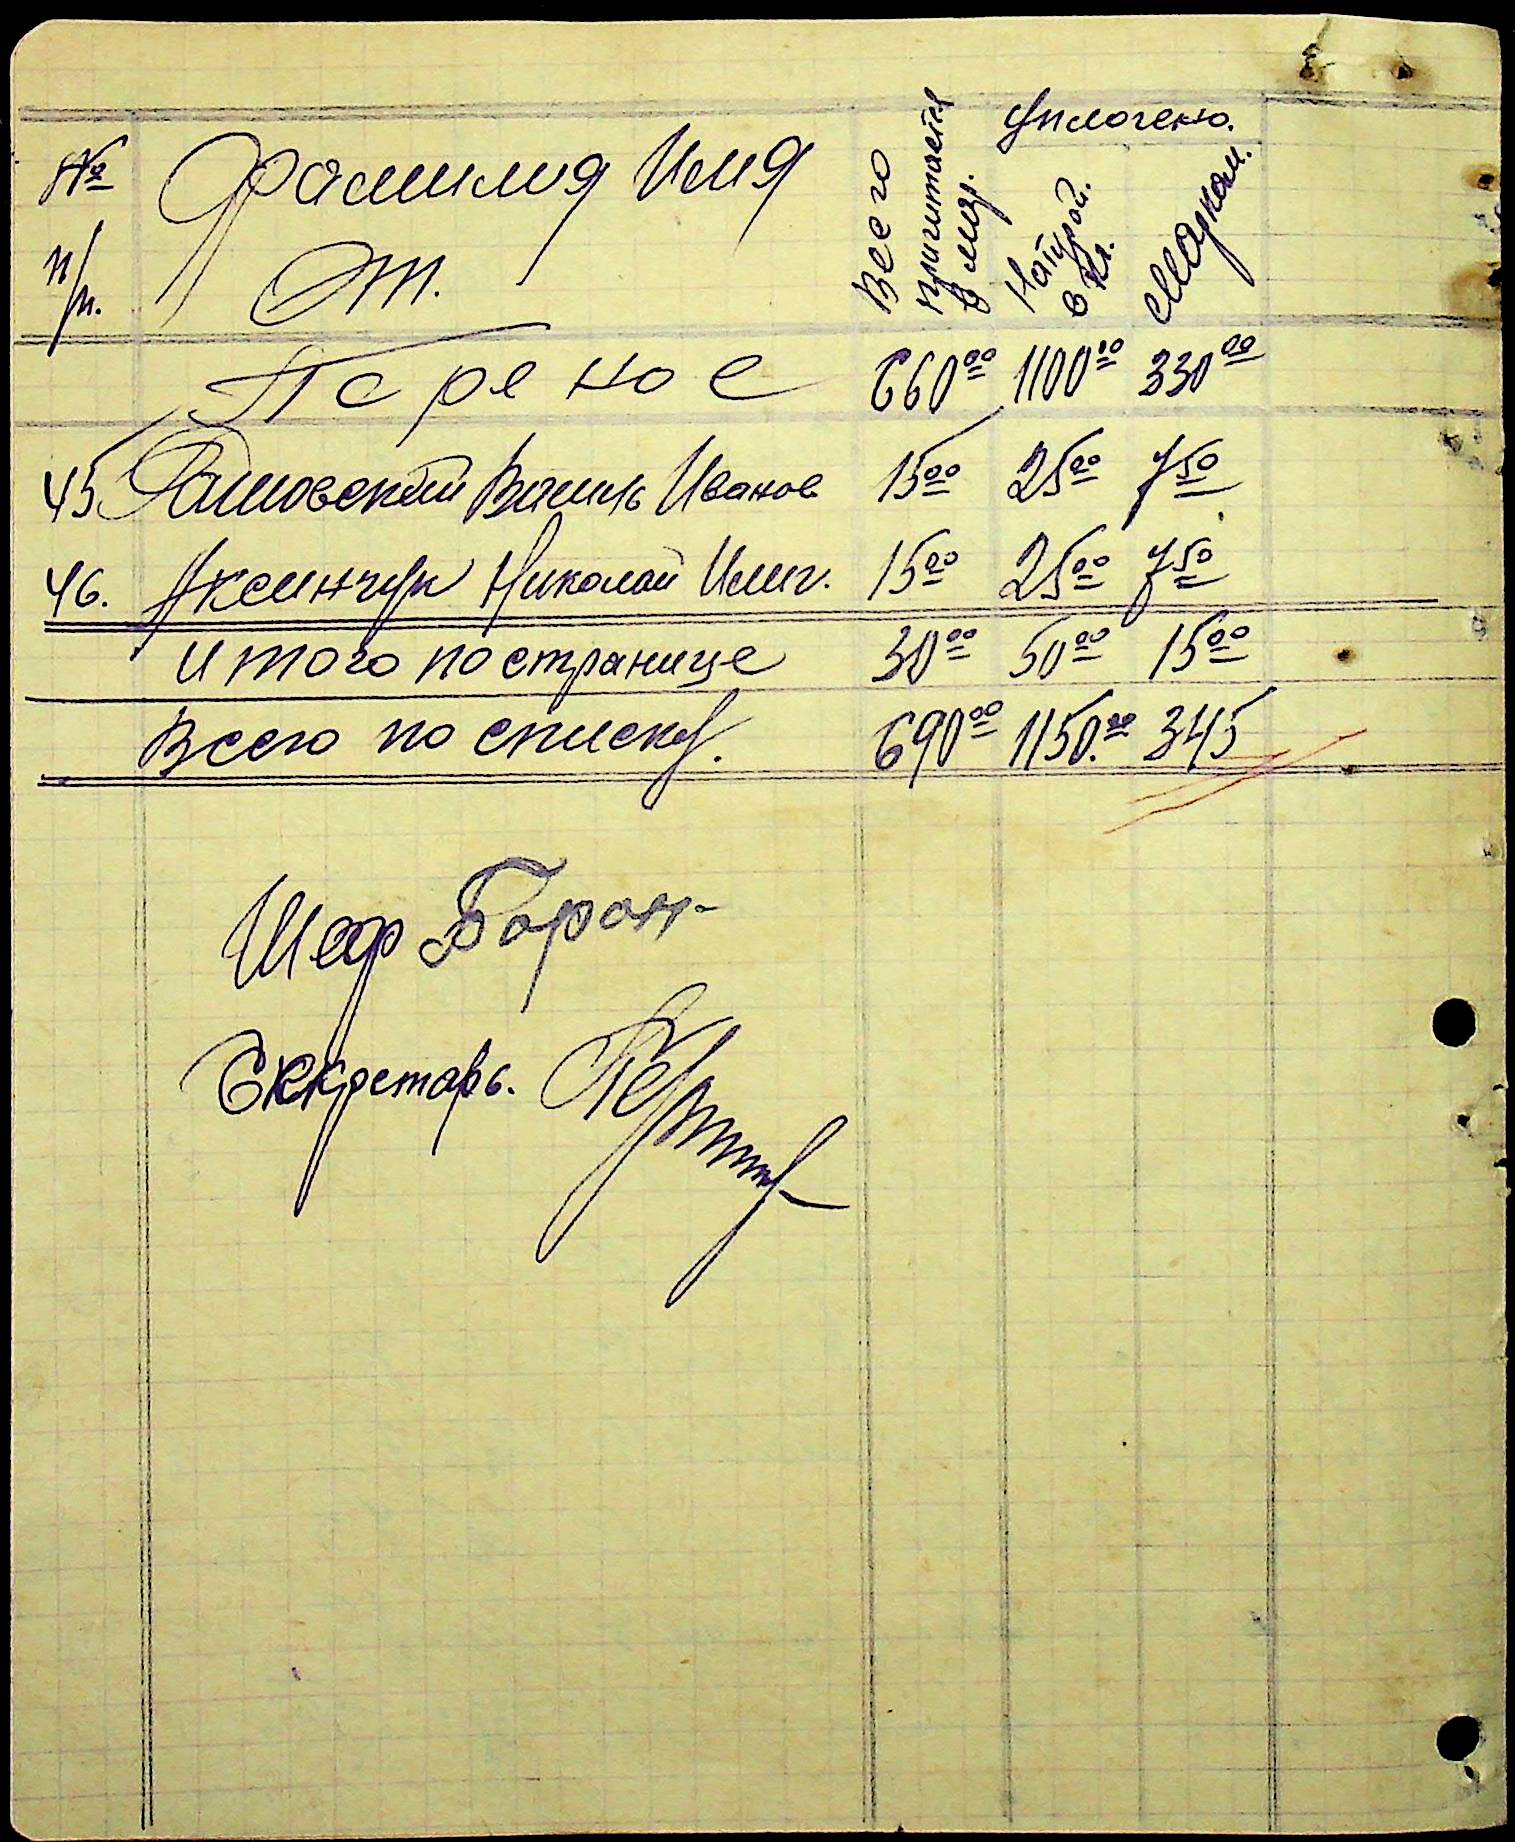 № п/п. Фамилия Имя От. Всего причитается в мар. Уплочено. Натурой в кг. Марками.
Перенос 66000 110000 33000
45 Василь Иванов 1500 2500 750
46. Аксинчук Николай Илич. 1500 2500 750
Итого по странице 3000 5000 1500
Всего по списку. 69000 1150.00 345
Шеф Барон
Секретарь.